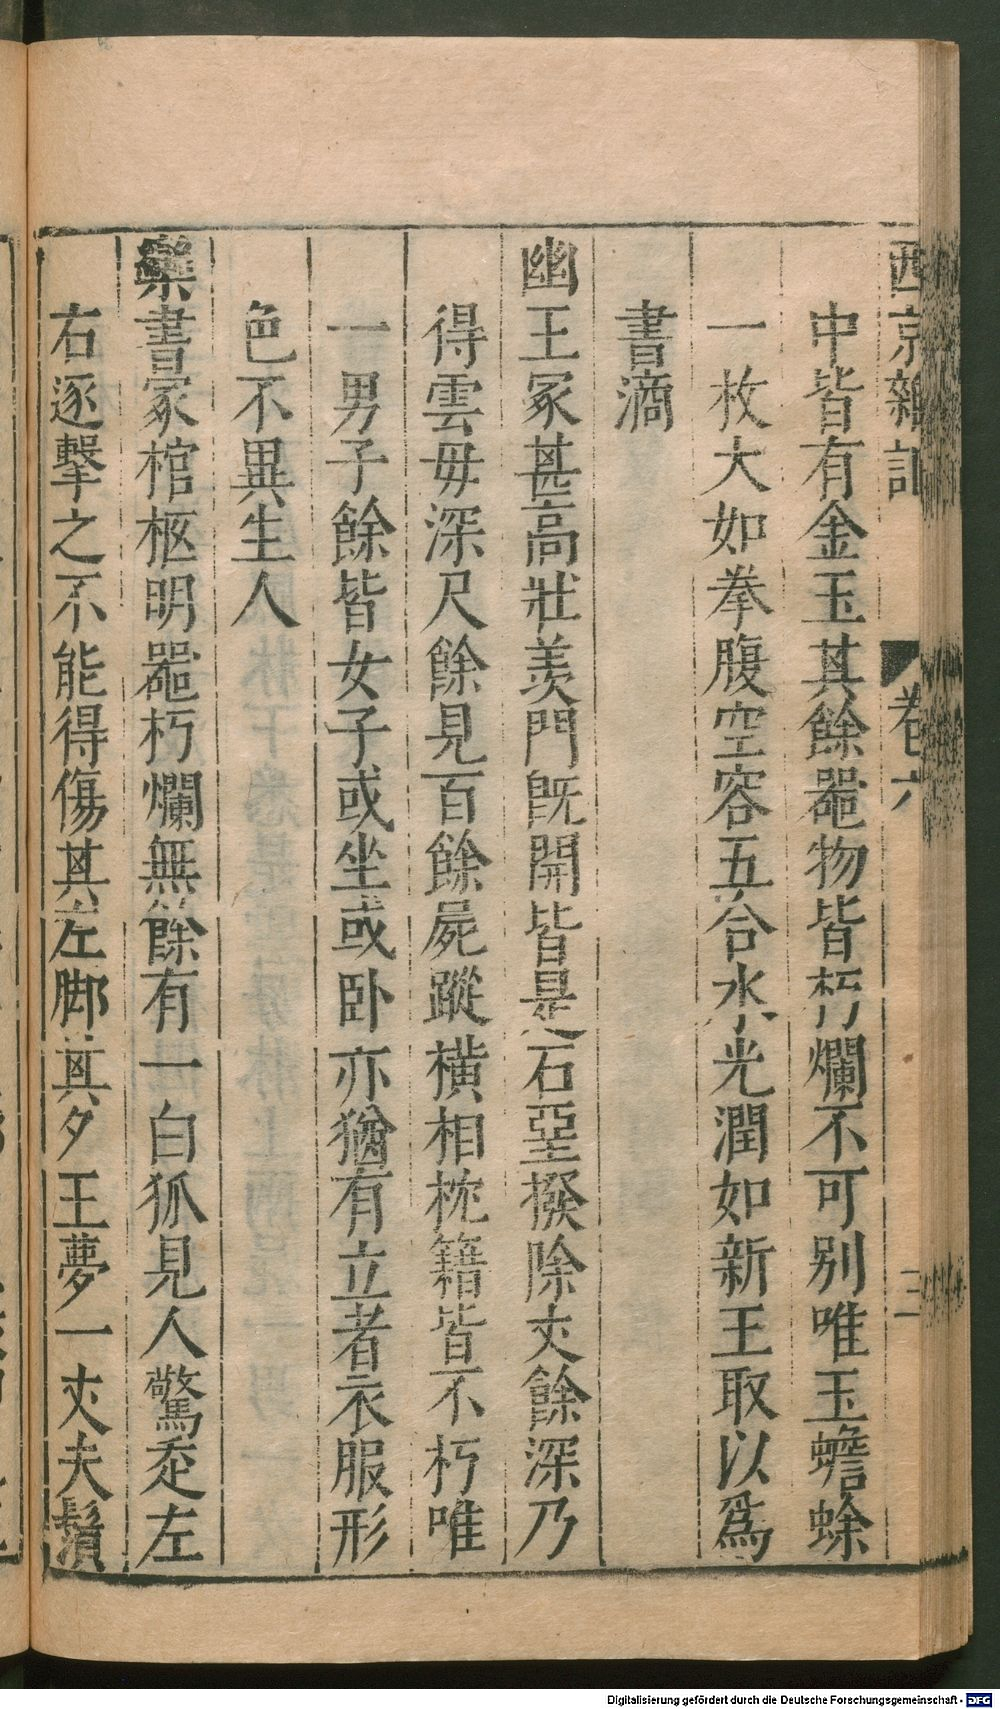 西京雜記 卷六 三
中皆有金玉其餘器物皆朽爛不可別唯玉蟾蜍
一枚大如拳腹空容五合水光潤如新王取以爲
書滴
幽王冢甚高壯羨門旣開皆是石堊撥除丈餘深乃
得雲毋深尺餘見百餘屍蹤橫相枕籍皆不朽唯
一男子餘皆女子或坐或卧亦猶有立者衣服形
色不異生人
欒書冢棺柩明器朽爛無餘有一白狐見人驚走左
右逐擊之不能得傷其左脚其夕王夢一丈夫鬚
Digitalisierung gefördert durch die Deutsche Forschungsgemeinschaft - DFG